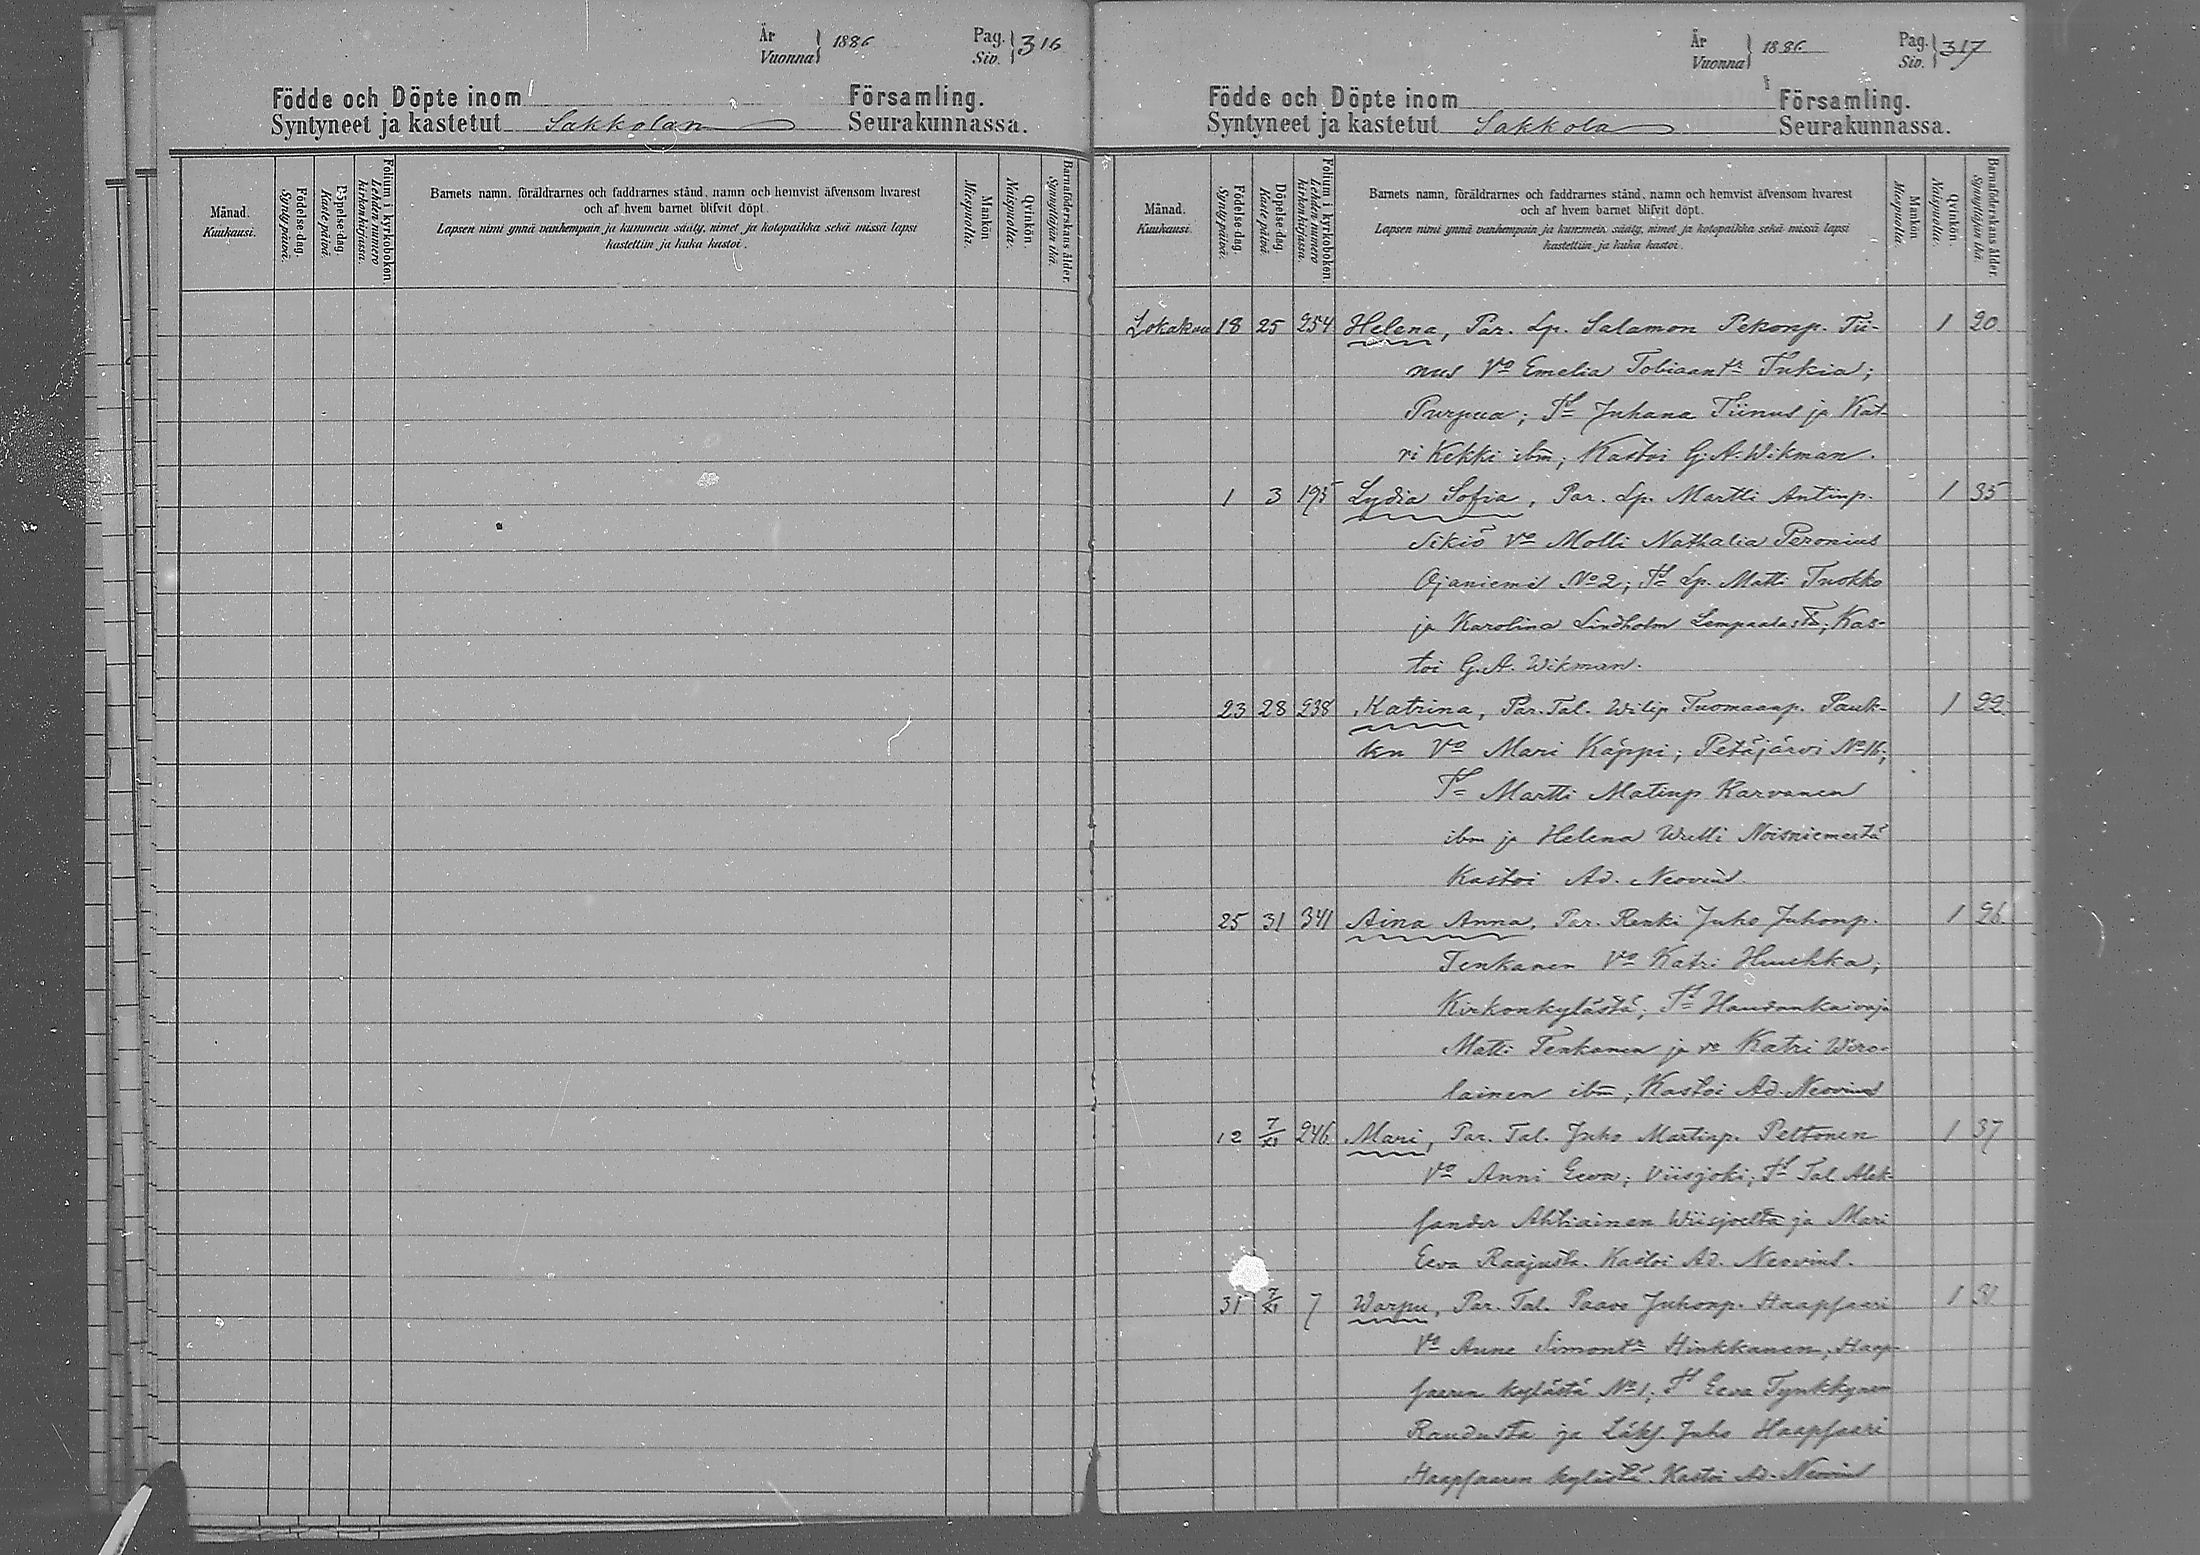 År
Vuonna } 1886 Pag.
Siv. } 316
Födde och Döpte inom Församling.
Syntyneet ja kastetut Sakkolan Seurakunnassa.
Månad.
Kuukausi.
Födelse-dag.
Syntypäivä.
Döpelse-dag.
Kastepäivä.
Folium i kyrkoboken.
Lehden numero kirkonkirjassa.
Barnets namn, föräldrarnes och faddrarnes stånd, namn och hemvist äfvensom hvarest
och af hvem barnet blifvit döpt.
Lapsen nimi ynnä vanhempain ja kummein sääty, nimet ja kotopaikka sekä missä lapsi
kastettiin ja kuka kastoi.
Mankön
Miespuolia.
Qvinkön.
Naispuolia.
Barnaföderskans ålder.
Synnyttäjän ikä.
År
Vuonna } 1886 Pag.
Siv. } 317
Födde och Döpte inom Församling.
Syntyneet ja kastetut Sakkola Seurakunnassa.
Månad.
Kuukausi.
Födelse-dag.
Syntypäivä.
Döpelse-dag.
Kastepäivä.
Folium i kyrkoboken.
Lehden numero kirkonkirjassa.
Barnets namn, föräldrarnes och faddrarnes stånd, namn och hemvist äfvensom hvarest
och af hvem barnet blifvit döpt.
Lapsen nimi ynnä vanhempain ja kummein sääty, nimet ja kotopaikka sekä missä lapsi
kastettiin ja kuka kastoi.
Mankön
Miespuolia.
Qvinkön.
Naispuolia.
Barnaföderskans ålder.
Synnyttäjän ikä.
Lokakuu 18 25 254 Helena, Par. Lp. Salamon Pekonp. Tii- 1 20
nus Vo Emelia Tobiaantr Tukia;
Purpua; Td Juhana Tiinus ja Kat-
ri Kekki ibm; Kastoi G. A. Wikman.
1 3 195 Lydia Sofia, Par. Lp. Martti Antinp. 1 35
Sikiö Vo Molli Nathalia Peronius
Ojaniemi No 2; Td Lp. Matti Tuokko
ja Karolina Lindholm Lempaalasta; Kas-
toi G. A. Wikman.
23 28 238 Katrina, Par. Tal. Wilip Tuomaanp. Pauk- 1 22
ku Vo Mari Käppi; Petäjärvi No 16;
Td Martti Matinp Karvanen
ibm ja Helena Wutti Noisniemestä
Kastoi Ad. Neovius.
25 31 341 Aina Anna, Par. Renki Juho Juhonp. 1 26
Tenkanen Vo Katri Huuhka;
Kirkonkylästä; Td Haudankaivaja
Matti Tenkanen ja vo Katri Wiro-
lainen ibm; Kastoi Ad. Neovius
12 7/XI 246 Mari, Par. Tal. Juho Martinp. Peltonen 1 37
Vo Anni Eeva; Viisjoki; Td Tal. Alek-
sander Ahtiainen Wiisjoelta ja Mari
Eeva Raajusta. Kastoi Ad. Neovius.
31 7/XI 7 Warpu, Par. Tal. Paavo Juhonp. Haapsaari 1 31
Vo Anne Simontr Hinkkanen, Haap-
saaren kylästä No 1; Td Eeva Tynkkynen
Raudusta ja Läks. Juho Haapsaari
Haapsaaren kylästä. Kastoi Ad. Neovius